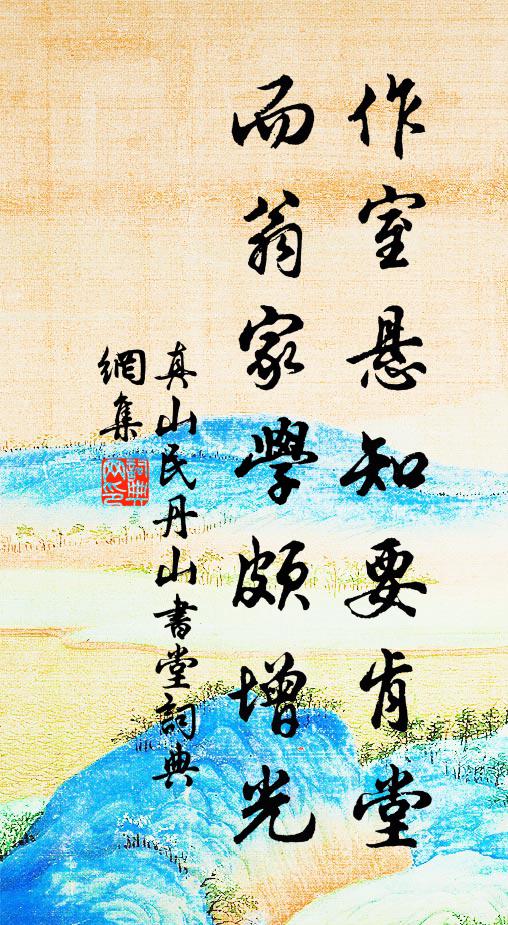 作室悬知要肯堂
而翁家學頗增光
真山民丹山書堂詞典
網集
詞典